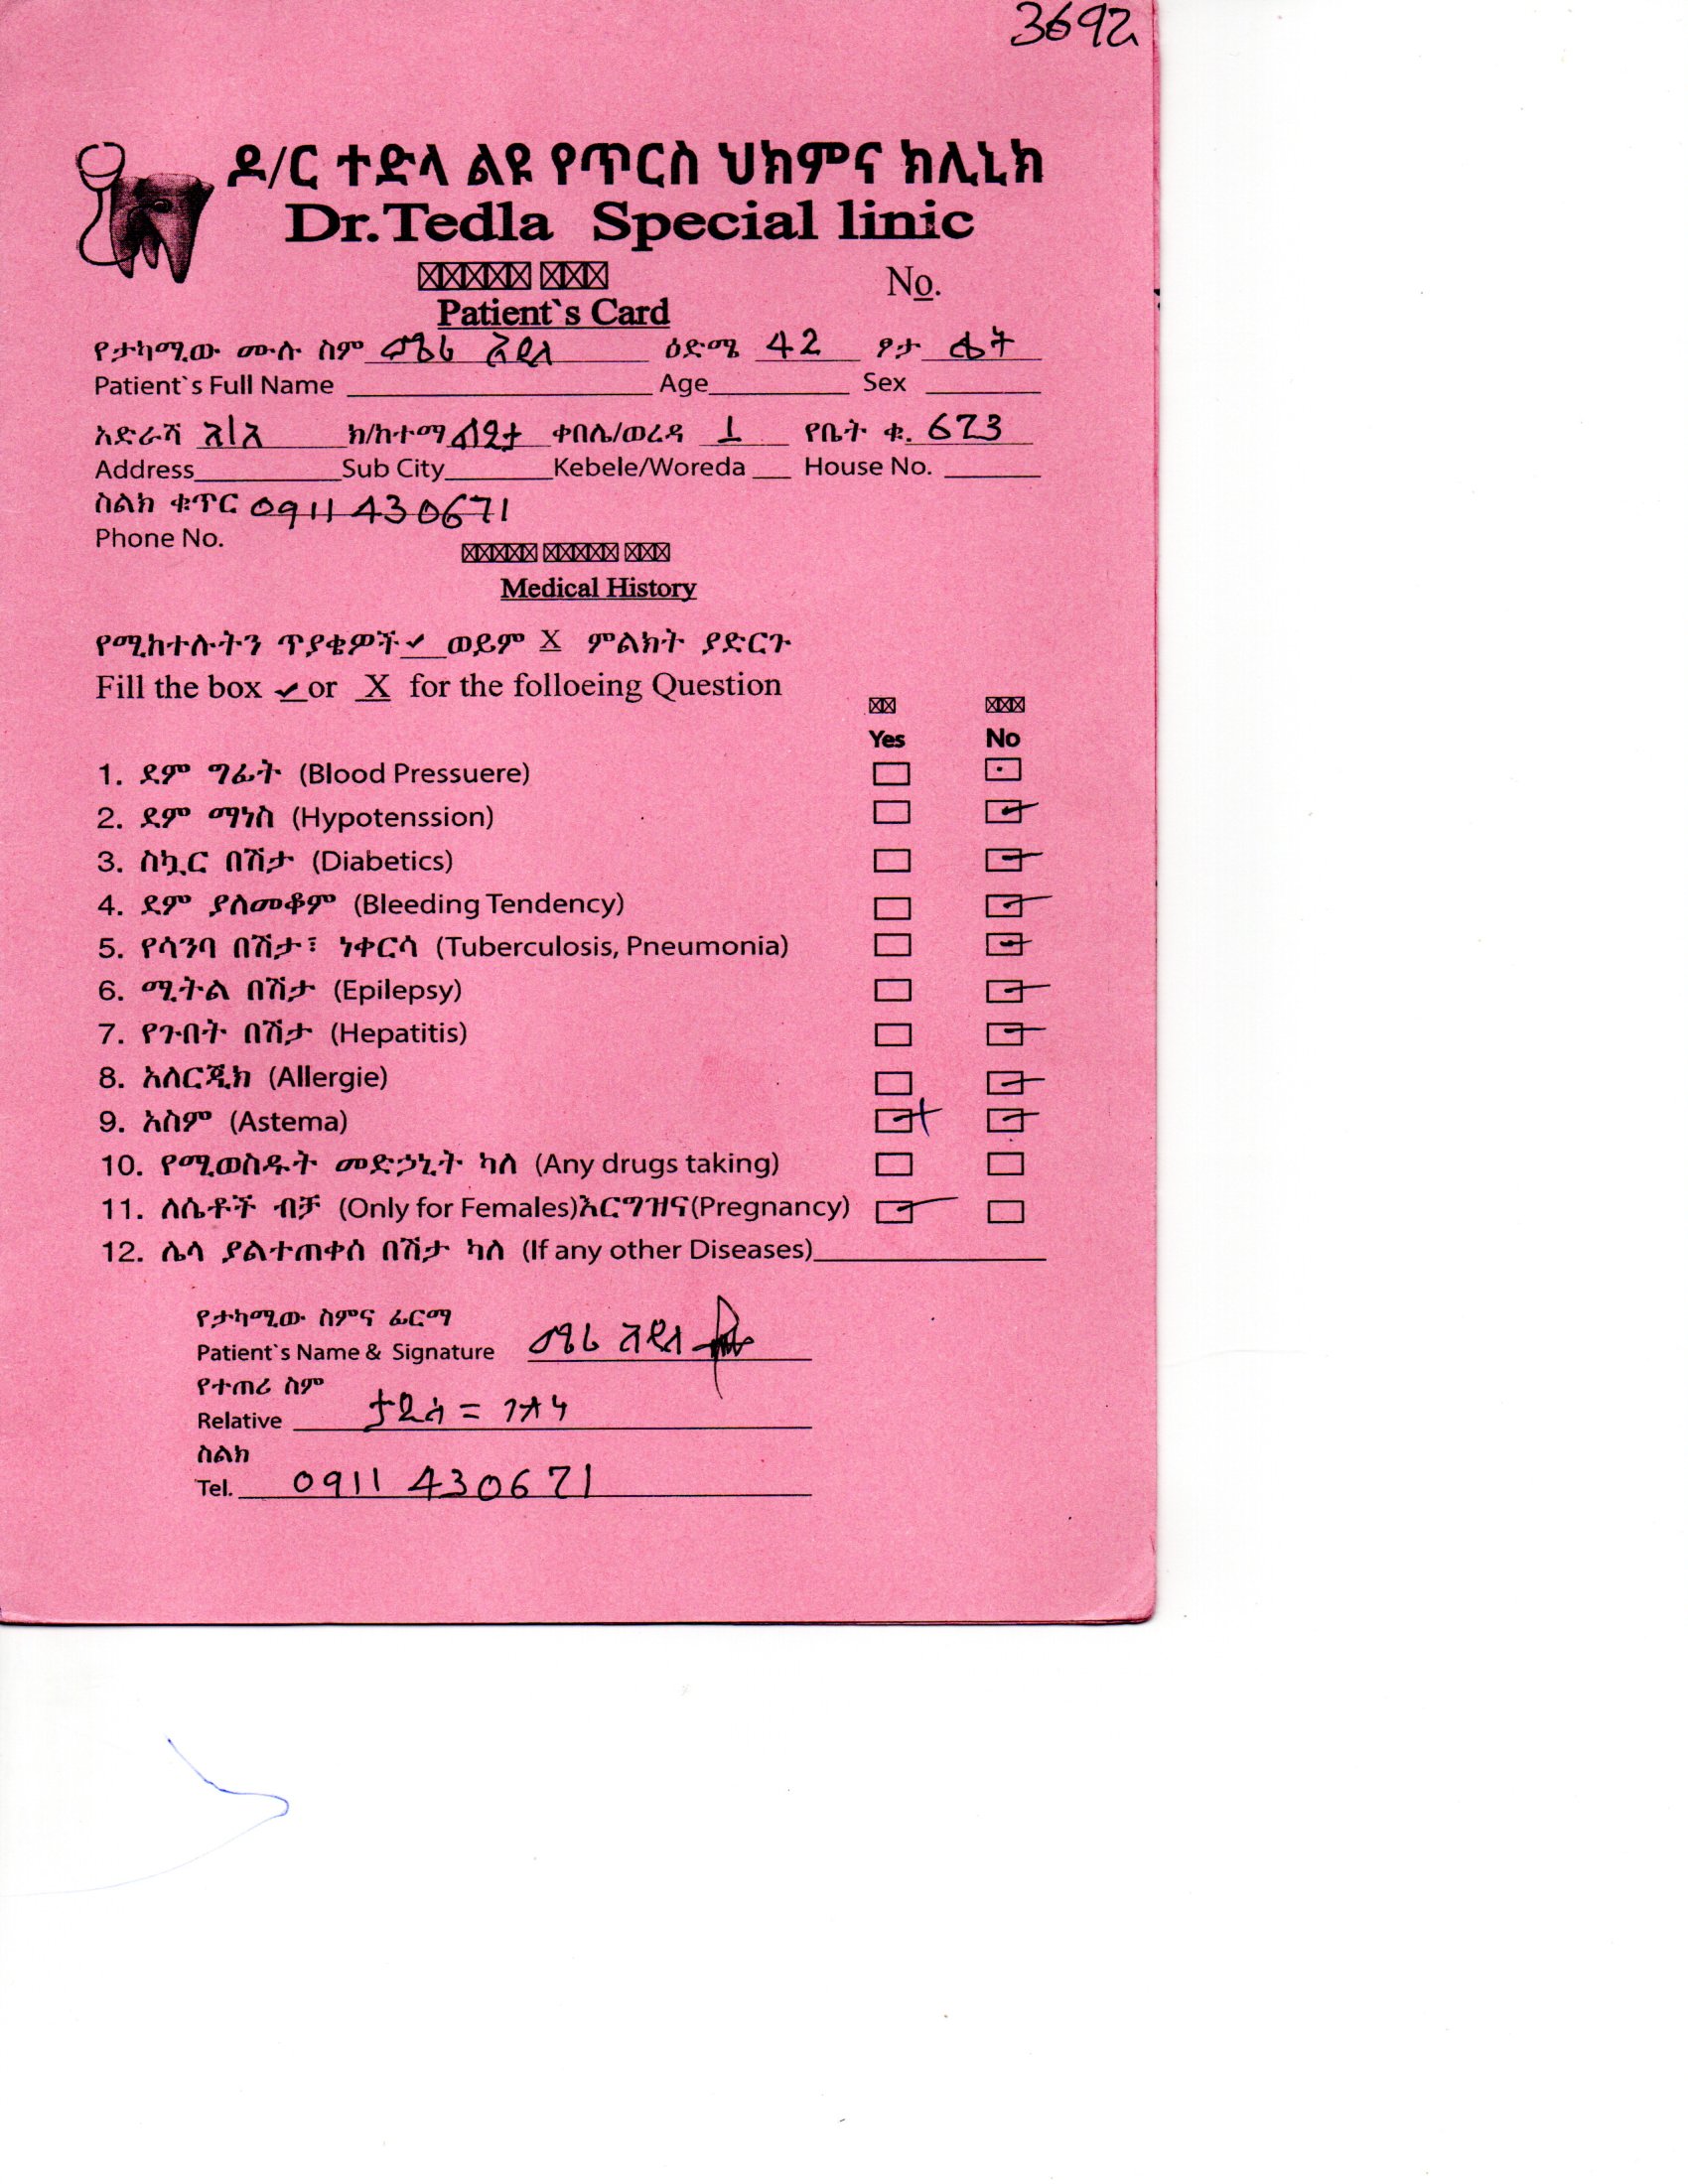 3692
ዶ/ር ተድላ ልዩ የጥርስ ህክምና ክሊኒክ
Dr.Tedla Special linic
No.
Patient`s Card
የታካሚው ሙሉ ስም ዕድሜ 42 ፆታ ሴት
Patient`s Full Name Age Sex
አድራሻ አ/አ ክ/ከተማ ልደታ ቀበሌ/ወረዳ 1 የቤት ቁ. 673
Address Sub City Kebele/Woreda House No.
ስልክ ቁጥር 0911430671
Phone No.
Medical History
የሚከተሉትን ጥያቄዎች ✓ ወይም X ምልክት ያድርጉ
Fill the box ✓ or X for the folloeing Question
Yes No
1. ደም ግፊት (Blood Pressuere)
2. ደም ማነስ (Hypotenssion)
3. ስኳር በሽታ (Diabetics)
4. ደም ያለመቆም (Bleeding Tendency)
5. የሳንባ በሽታ፣ ነቀርሳ (Tuberculosis, Pneumonia)
6. ሚትል በሽታ (Epilepsy)
7. የጉበት በሽታ (Hepatitis)
8. አለርጂክ (Allergie)
9. አስም (Astema)
10. የሚወስዱት መድኃኒት ካለ (Any drugs taking)
11. ለሴቶች ብቻ (Only for Females)እርግዝና(Pregnancy)
12. ሌላ ያልተጠቀሰ በሽታ ካለ (If any other Diseases)
የታካሚው ስምና ፊርማ
Patient`s Name & Signature
የተጠሪ ስም
Relative
ስልክ
Tel. 0911 430671